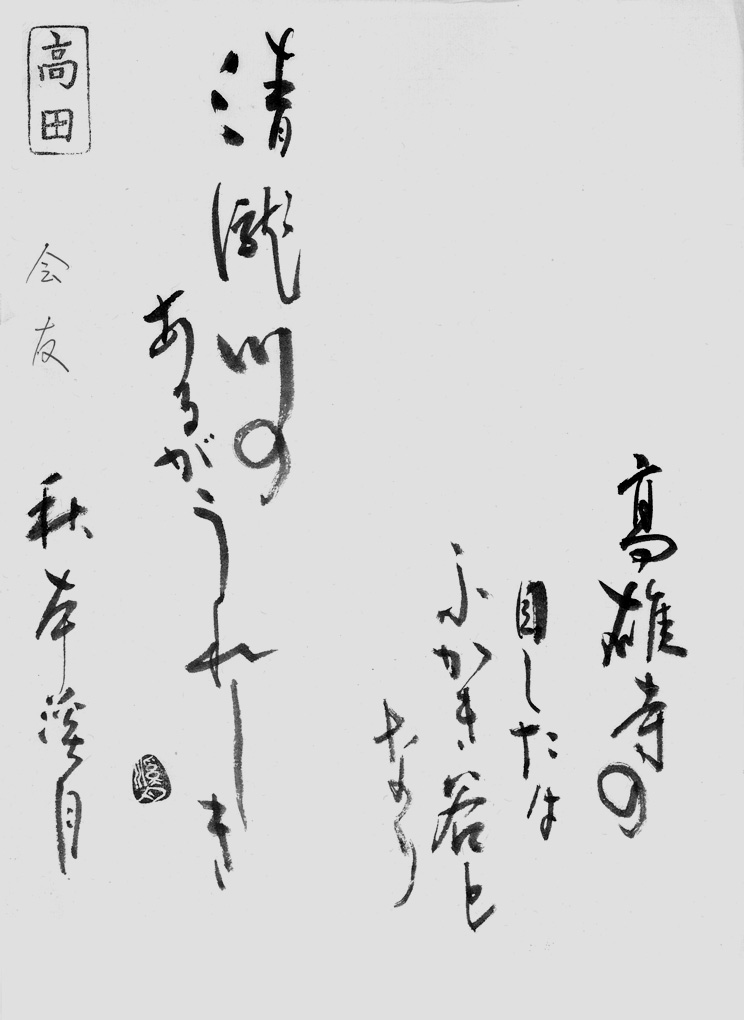 高雄寺の
目したは
ふかき谷と
なり
清瀧川の
あるがうれしき
高田
会友
秋本溪月
溪月